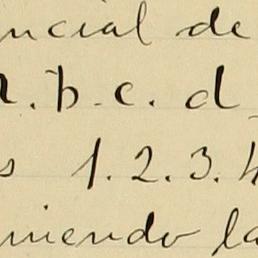 ncial de
a. b. c. d
s 1. 2. 3. 4
niendo la